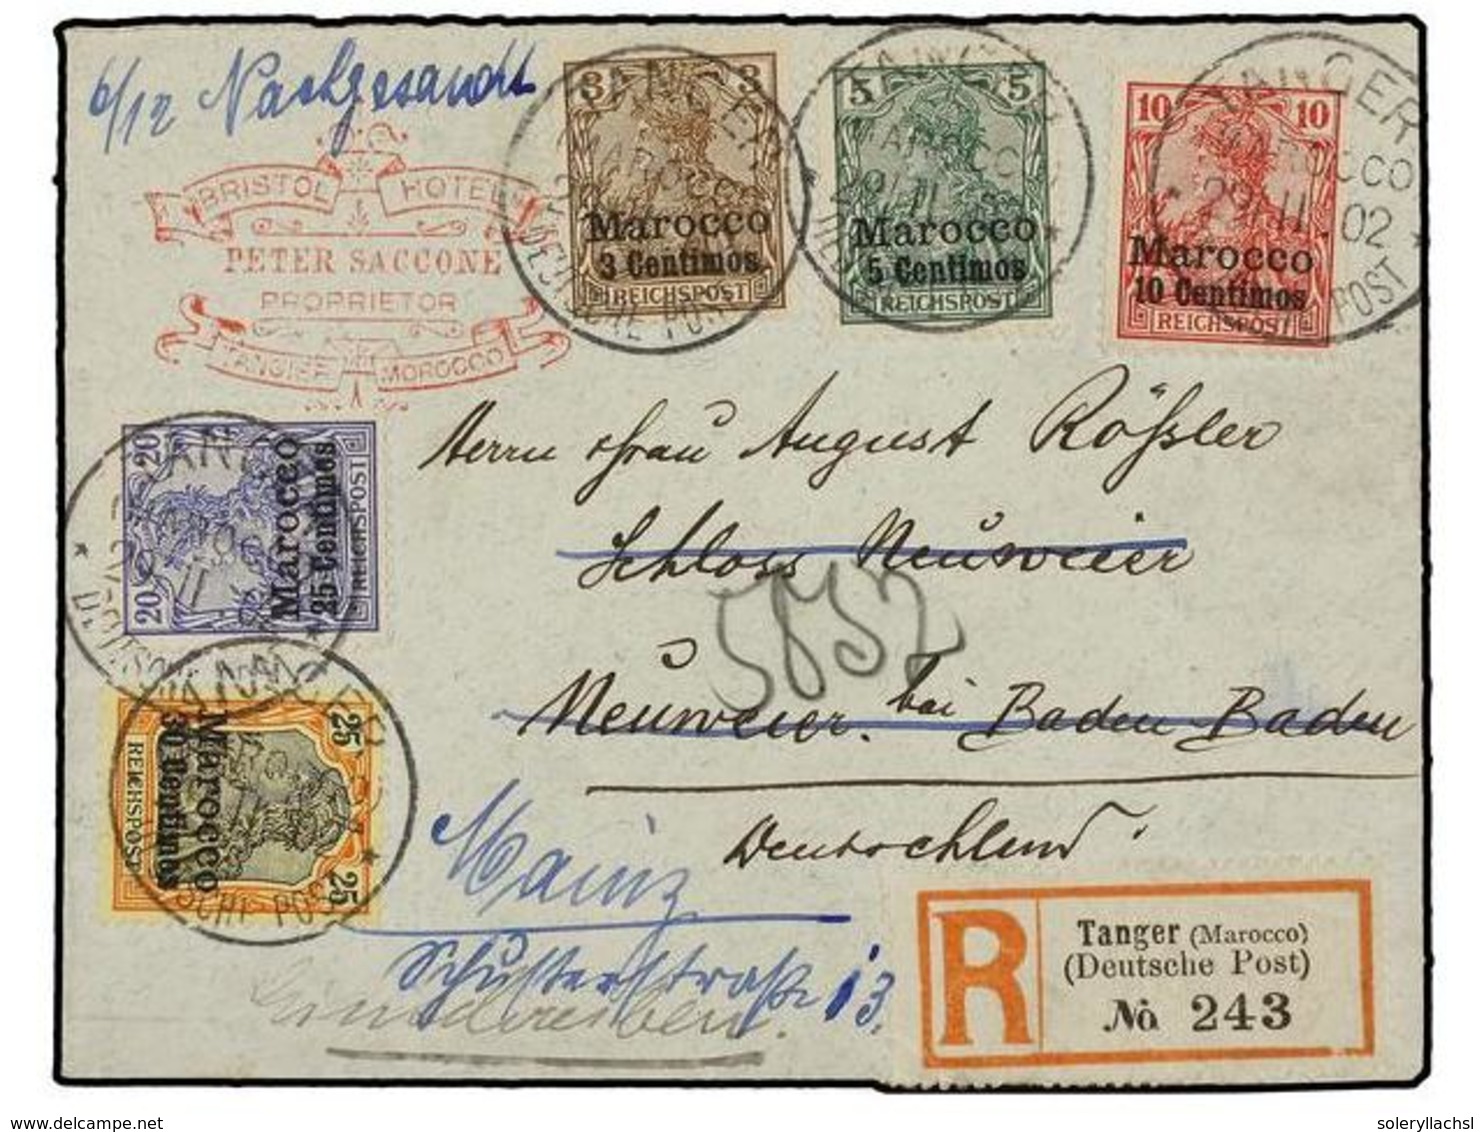 6/12 Nachgesandt
BRISTOL HOTEL
PETER SACCONE
PROPRIETOR
TANGIER MOROCCO
3 3
Marocco
3 Centimos
REICHSPOST
5 5
Marocco
5 Centimos
REICHSPOST
10 10
Marocco
10 Centimos
REICHSPOST
TANGER
MAROCCO
29/11.02
DEUTSCHE POST
20 20
Marocco
25 Centimos
REICHSPOST
25 25
Marocco
30 Centimos
REICHSPOST
Herrn & Frau August Rößler
Schloss Neuweier
5852
Neuweier. bei Baden-Baden
Deutschland.
Mainz
Schusterstraße 13.
Einschreiben.
R
Tanger (Marocco)
(Deutsche Post)
No 243
www.delcampe.net
soleryllachsl